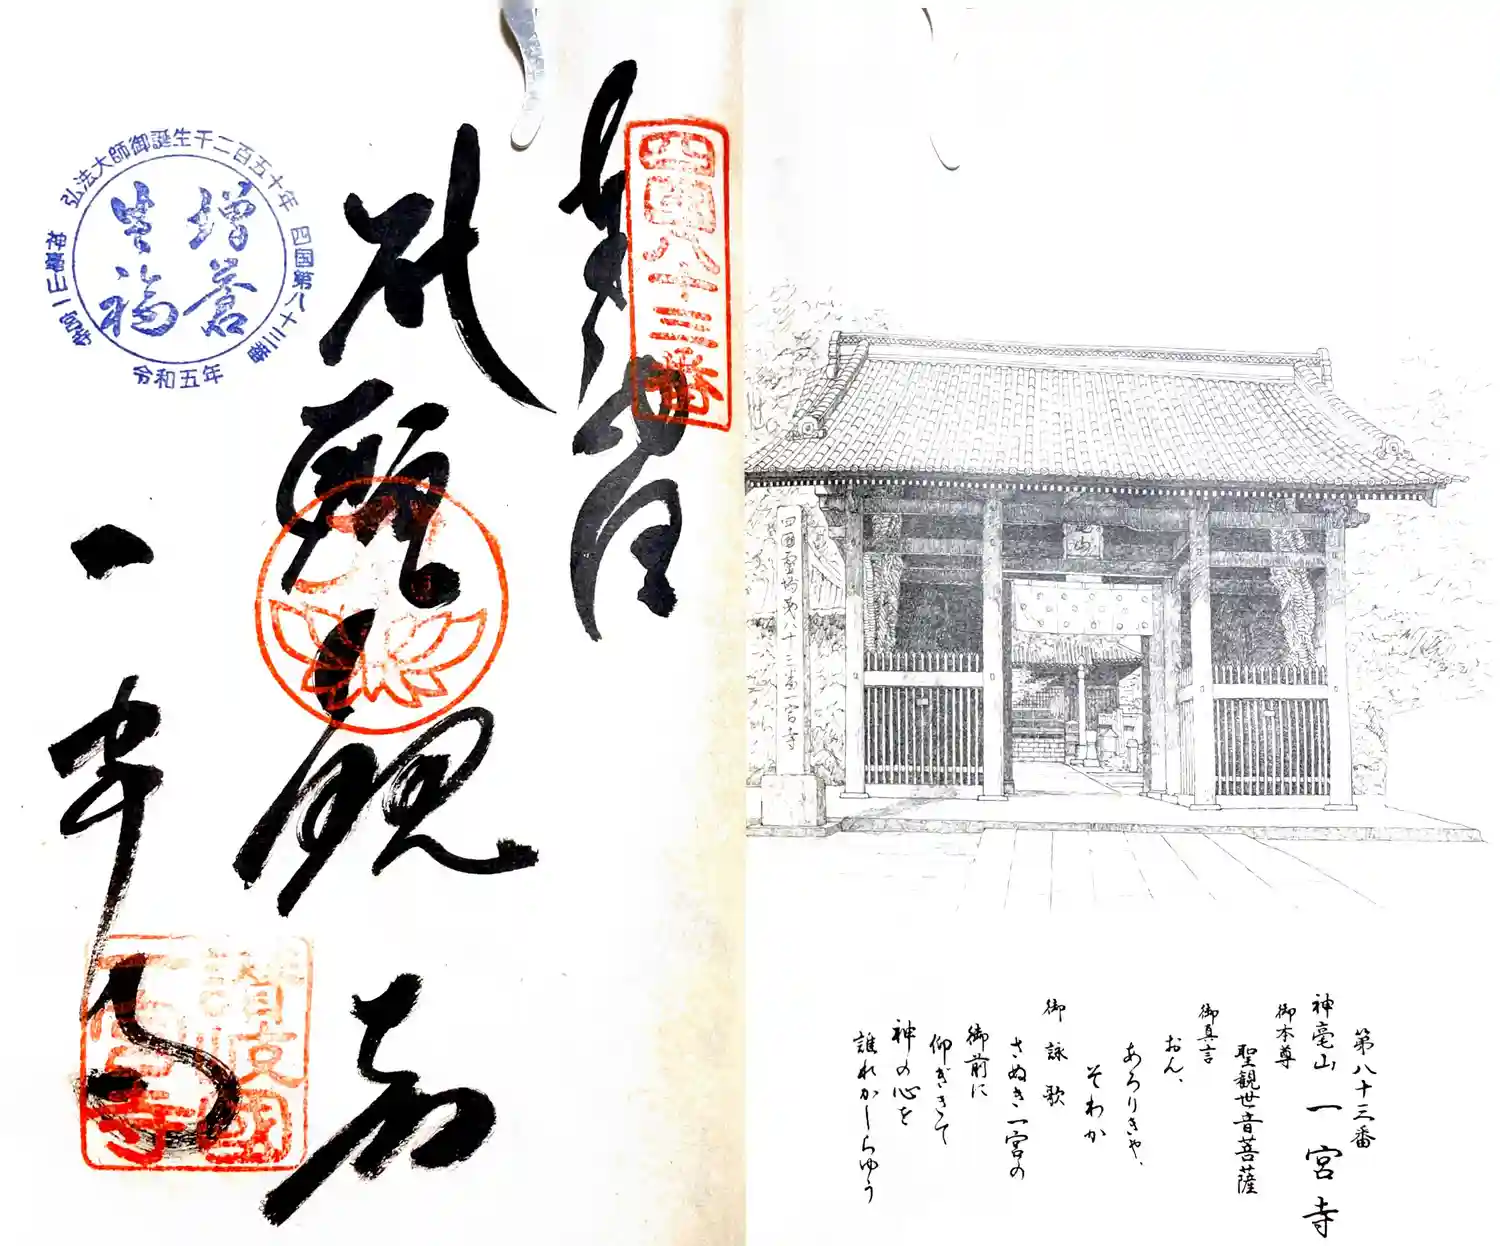 四国霊場第八十三番一宮寺
第八十三番
神毫山 一宮寺
御本尊
聖観世音菩薩
御真言
おん、
あろりきや、
そわか
御詠歌
さぬき一宮の
御前に
仰ぎきて
神の心を
誰れかしらゆう
四國八十三番
奉拝
一宮寺
讃岐國
一宮寺
弘法大師御誕生千二百五十年
四国第八十三番
神毫山一宮寺
令和五年
増蒼
生福